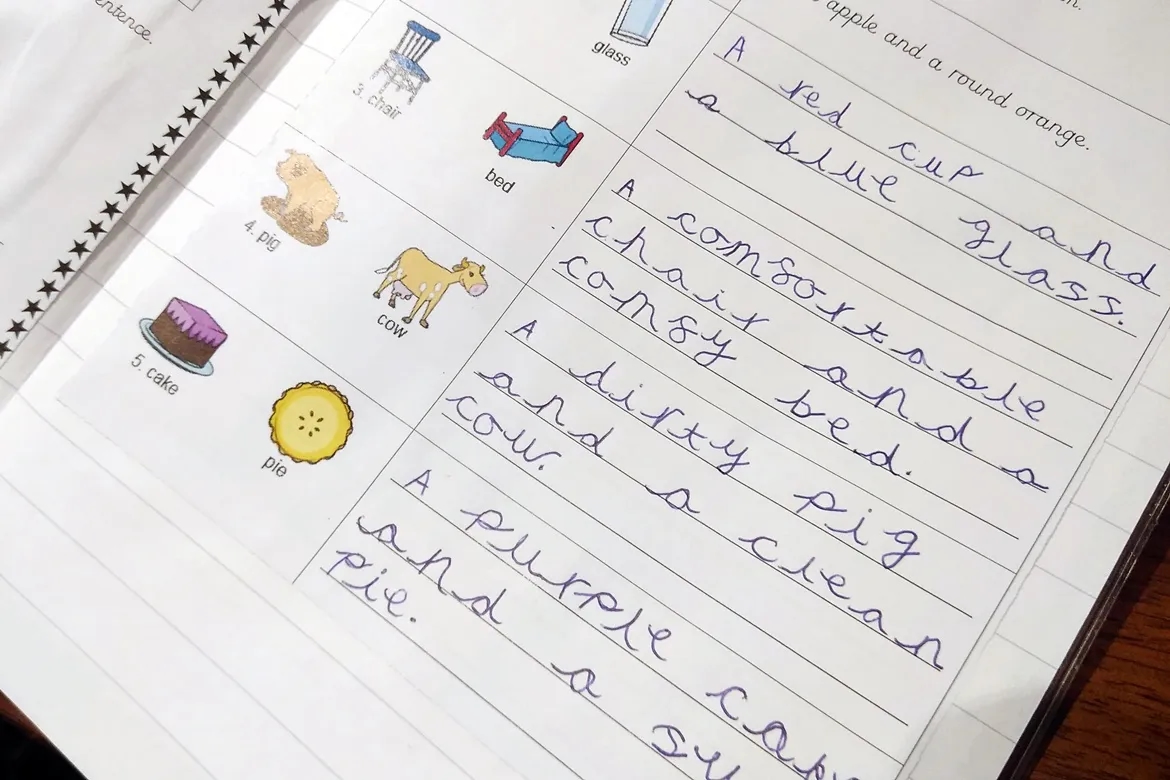 glass
3. chair
bed
4. pig
cow
5. cake
pie
apple and a round orange.
A red cup and
a blue glass.
A comfortable
chair and a
comfy bed.
A dirty pig
and a clean
cow.
A purple
and a
pie.